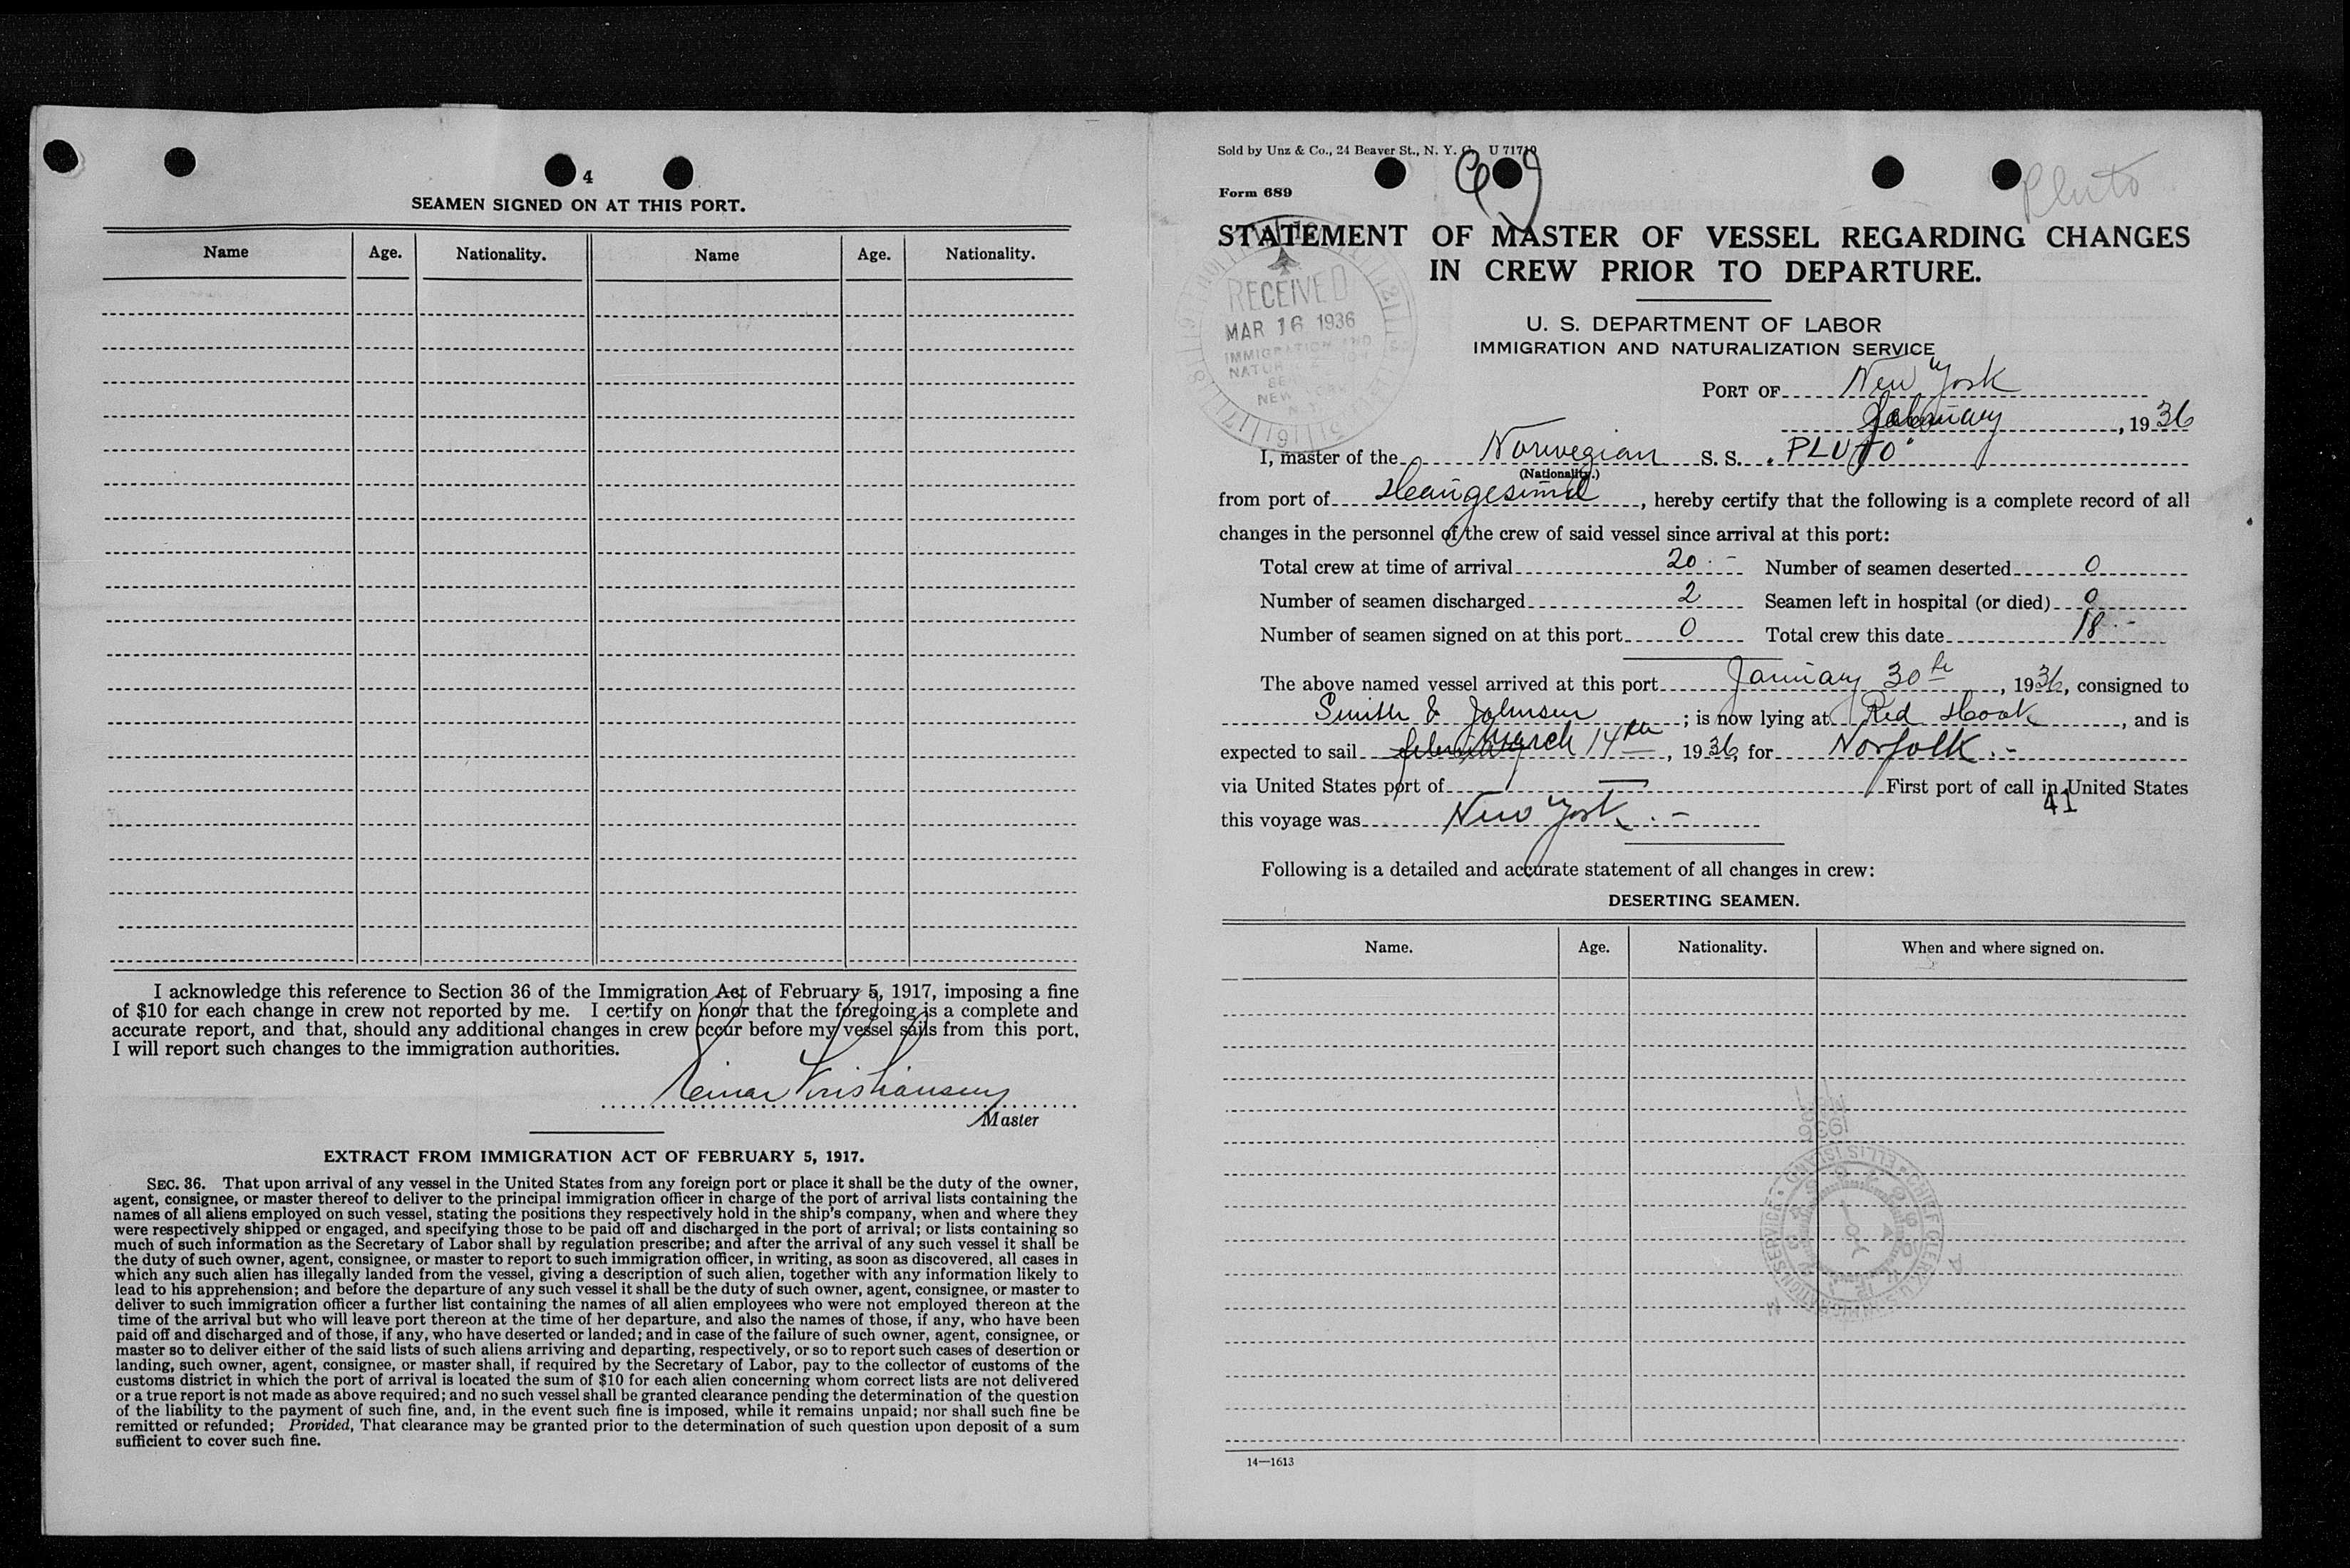 4
SEAMEN SIGNED ON AT THIS PORT.
Name Age. Nationality. Name Age. Nationality.
I acknowledge this reference to Section 36 of the Immigration Act of February 5, 1917, imposing a fine
of $10 for each change in crew not reported by me. I certify on honor that the foregoing is a complete and
accurate report, and that, should any additional changes in crew occur before my vessel sails from this port,
I will report such changes to the immigration authorities.
Master
EXTRACT FROM IMMIGRATION ACT OF FEBRUARY 5, 1917.
SEC. 36. That upon arrival of any vessel in the United States from any foreign port or place it shall be the duty of the owner,
agent, consignee, or master thereof to deliver to the principal immigration officer in charge of the port of arrival lists containing the
names of all aliens employed on such vessel, stating the positions they respectively hold in the ship's company, when and where they
were respectively shipped or engaged, and specifying those to be paid off and discharged in the port of arrival; or lists containing so
much of such information as the Secretary of Labor shall by regulation prescribe; and after the arrival of any such vessel it shall be
the duty of such owner, agent, consignee, or master to report to such immigration officer, in writing, as soon as discovered, all cases in
which any such alien has illegally landed from the vessel, giving a description of such alien, together with any information likely to
lead to his apprehension; and before the departure of any such vessel it shall be the duty of such owner, agent, consignee, or master to
deliver to such immigration officer a further list containing the names of all alien employees who were not employed thereon at the
time of the arrival but who will leave port thereon at the time of her departure, and also the names of those, if any, who have been
paid off and discharged and of those, if any, who have deserted or landed; and in case of the failure of such owner, agent, consignee, or
master so to deliver either of the said lists of such aliens arriving and departing, respectively, or so to report such cases of desertion or
landing, such owner, agent, consignee, or master shall, if required by the Secretary of Labor, pay to the collector of customs of the
customs district in which the port of arrival is located the sum of $10 for each alien concerning whom correct lists are not delivered
or a true report is not made as above required; and no such vessel shall be granted clearance pending the determination of the question
of the liability to the payment of such fine, and, in the event such fine is imposed, while it remains unpaid; nor shall such fine be
remitted or refunded; Provided, That clearance may be granted prior to the determination of such question upon deposit of a sum
sufficient to cover such fine.
Sold by Unz & Co., 24 Beaver St., N. Y. C. U 71710
Form 689
Pluto
STATEMENT OF MASTER OF VESSEL REGARDING CHANGES
IN CREW PRIOR TO DEPARTURE.
RECEIVED
MAR 16 1936
IMMIGRATION AND
NEW YORK
N. Y.
U. S. DEPARTMENT OF LABOR
IMMIGRATION AND NATURALIZATION SERVICE
PORT OF New York
February, 1936
I, master of the Norwegian S. S. "PLUTO"
(Nationality.)
from port of Haugesund, hereby certify that the following is a complete record of all
changes in the personnel of the crew of said vessel since arrival at this port:
Total crew at time of arrival 20.- Number of seamen deserted 0
Number of seamen discharged 2 Seamen left in hospital (or died) 0
Number of seamen signed on at this port 0 Total crew this date 18.-
The above named vessel arrived at this port January 30th, 1936, consigned to
Smith & Johnson; is now lying at Red Hook, and is
expected to sail March 14th, 1936, for Norfolk.-
via United States port of — First port of call in United States
41
this voyage was New York.-
Following is a detailed and accurate statement of all changes in crew:
DESERTING SEAMEN.
Name. Age. Nationality. When and where signed on.
1936
14—1613